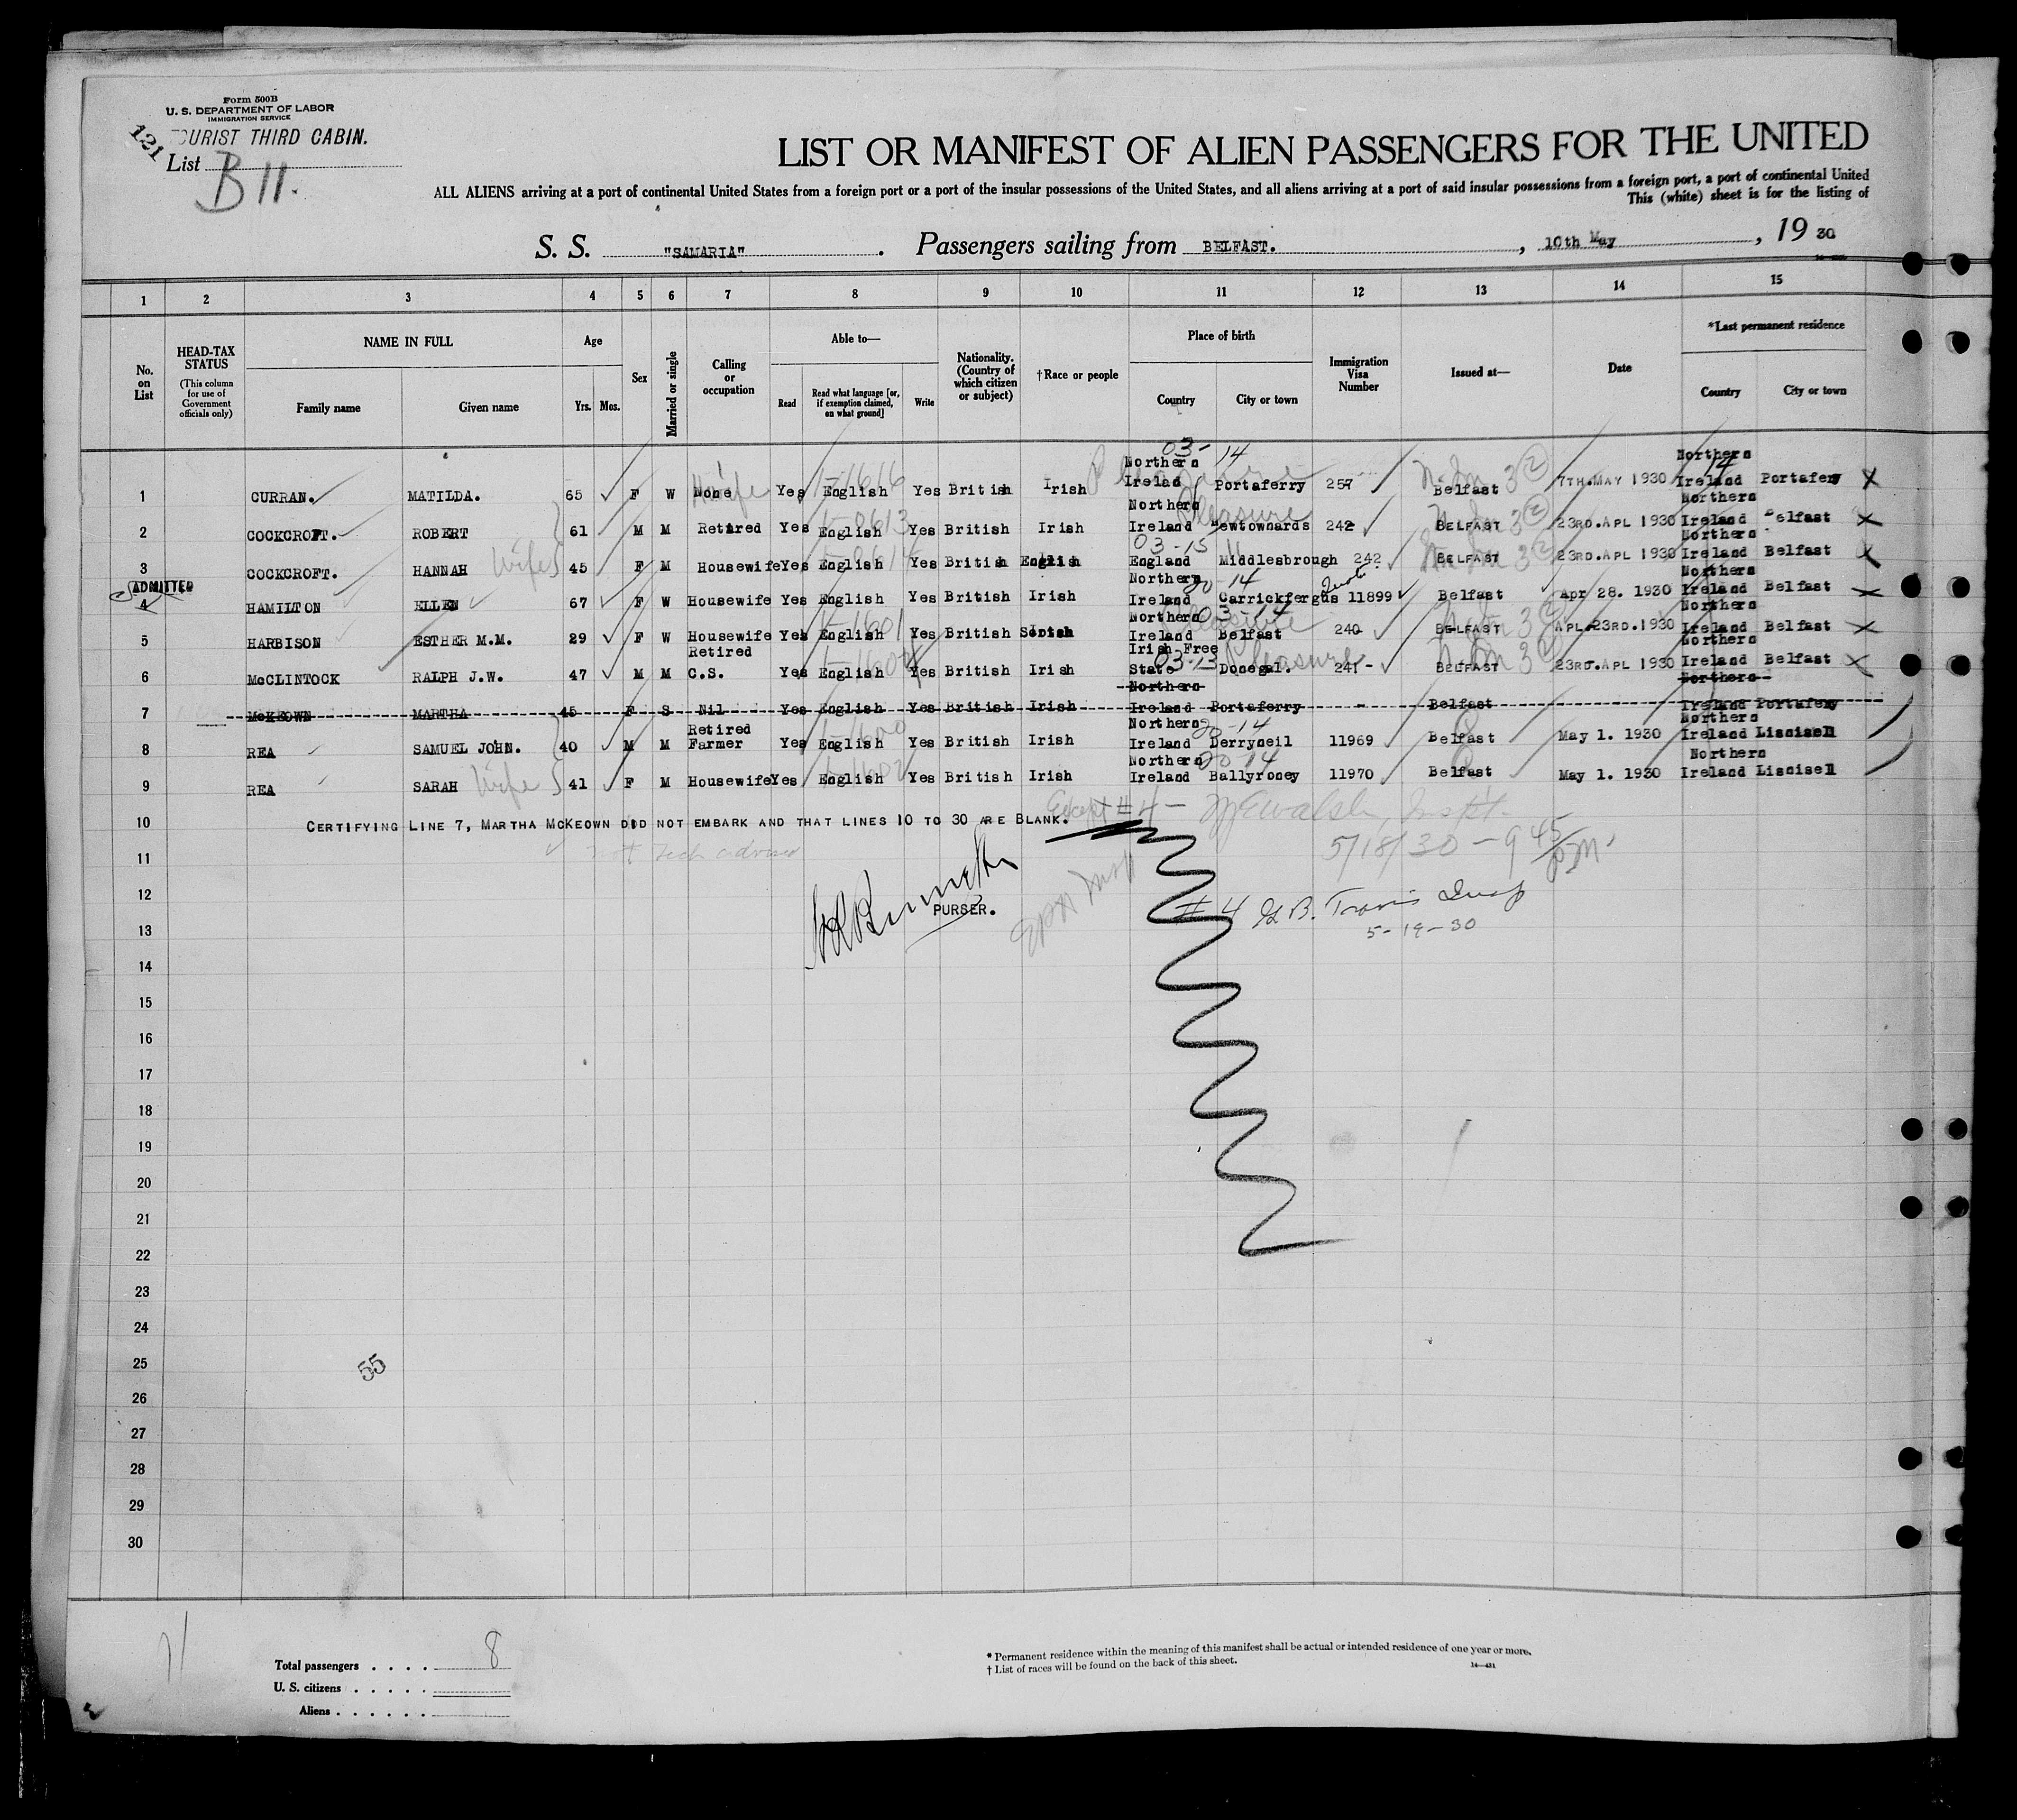 Form 500B
U. S. DEPARTMENT OF LABOR
IMMIGRATION SERVICE
TOURIST THIRD CABIN.
121
List B 11.
LIST OR MANIFEST OF ALIEN PASSENGERS FOR THE UNITED
ALL ALIENS arriving at a port of continental United States from a foreign port or a port of the insular possessions of the United States, and all aliens arriving at a port of said insular possessions from a foreign port, a port of continental United
This (white) sheet is for the listing of
S. S. "SAMARIA". Passengers sailing from BELFAST., 10th May, 19 30
1 2 3 4 5 6 7 8 9 10 11 12 13 14 15
No. on List
HEAD-TAX STATUS (This column for use of Government officials only)
NAME IN FULL
Family name Given name
Age
Yrs. Mos.
Sex
Married or single
Calling or occupation
Able to—
Read Read what language [or, if exemption claimed, on what ground] Write
Nationality. (Country of which citizen or subject)
†Race or people
Place of birth
Country City or town
Immigration Visa Number
Issued at—
Date
*Last permanent residence
Country City or town
1 CURRAN. MATILDA. 65 F W None Yes English Yes British Irish Northern Ireland Portaferry 257 Belfast 7TH.MAY 1930 Northern Ireland Portafery X
2 COCKCROFT. ROBERT 61 M M Retired Yes English Yes British Irish Northern Ireland Newtownards 242 BELFAST 23RD.APL 1930 Northern Ireland Belfast X
3 COCKCROFT. HANNAH Wife 45 F M Housewife Yes English Yes British English England Middlesbrough 242 BELFAST 23RD.APL 1930 Northern Ireland Belfast X
ADMITTED
4 HAMILTON ELLEN 67 F W Housewife Yes English Yes British Irish Northern Ireland Carrickfergus 11899 Belfast Apr 28. 1930 Northern Ireland Belfast X
5 HARBISON ESTHER M.M. 29 F W Housewife Yes English Yes British Northern Ireland Belfast 240 BELFAST APL.23RD.1930 Northern Ireland Belfast X
6 McCLINTOCK RALPH J.W. 47 M M Retired C.S. Yes English Yes British Irish Irish Free State Donegal. 241 BELFAST 23RD.APL 1930 Northern Ireland Belfast X
7 McKEOWN MARTHA 45 F S Nil Yes English Yes British Irish Northern Ireland Portaferry - Belfast Northern Ireland Portafery
8 REA SAMUEL JOHN. 40 M M Retired Farmer Yes English Yes British Irish Northern Ireland Derryneil 11969 Belfast May 1. 1930 Northern Ireland Liscisell
9 REA SARAH Wife 41 F M Housewife Yes English Yes British Irish Northern Ireland Ballyroney 11970 Belfast May 1. 1930 Northern Ireland Liscisell
10 CERTIFYING LINE 7, MARTHA McKEOWN DID NOT EMBARK AND THAT LINES 10 TO 30 ARE BLANK.
Except # 4 -
5/18/30 - 9 45 pm
11
12
PURSER.
# 4 G.B. Travis Insp
5-19-30
13
14
15
16
17
18
19
20
21
22
23
24
25
55
26
27
28
29
30
Total passengers . . . . 8
U. S. citizens . . . . .
Aliens . . . . . .
* Permanent residence within the meaning of this manifest shall be actual or intended residence of one year or more.
† List of races will be found on the back of this sheet.